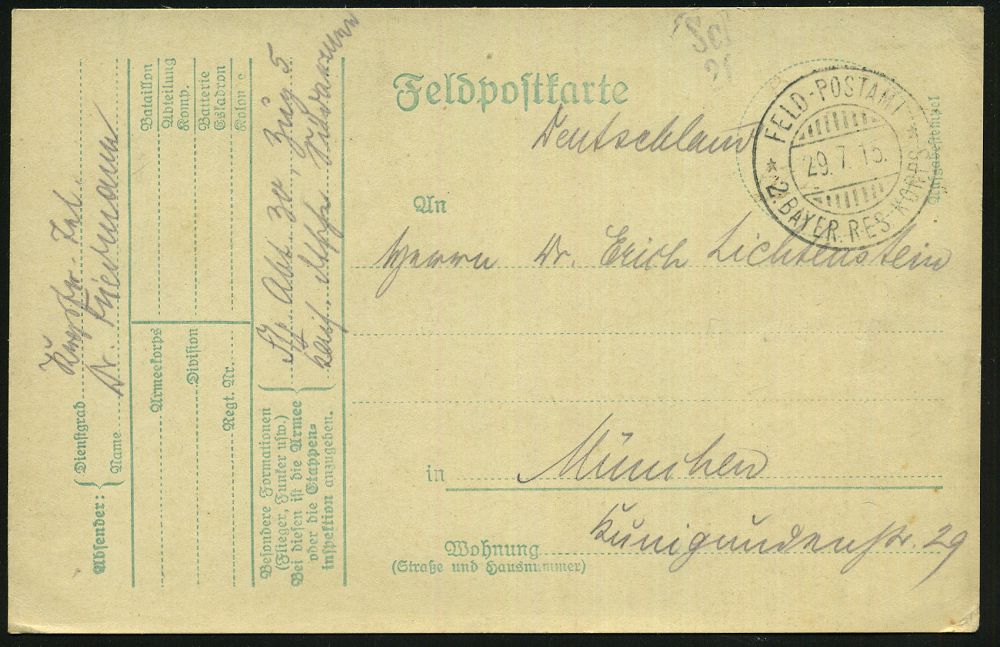 Sct
21
Feldpostkarte
Deutschland
FELD-POSTAMT
29.7.15.
* 2. BAYER. RES.-KORPS *
An
Herrn Dr. Erich Lichtenstein
in München
Wohnung Kunigundenstr. 29
(Straße und Hausnummer)
Absender:
Dienstgrad
Name Dr.
Bataillon
Abteilung
Komp.
Batterie
Eskadron
Kolonne
Armeekorps
Division
Regt. Nr.
Besondere Formationen
(Flieger, Funker usw.)
Bei diesen ist die Armee
oder die Etappen-
inspektion anzugeben.
Abt 30, Zug 5